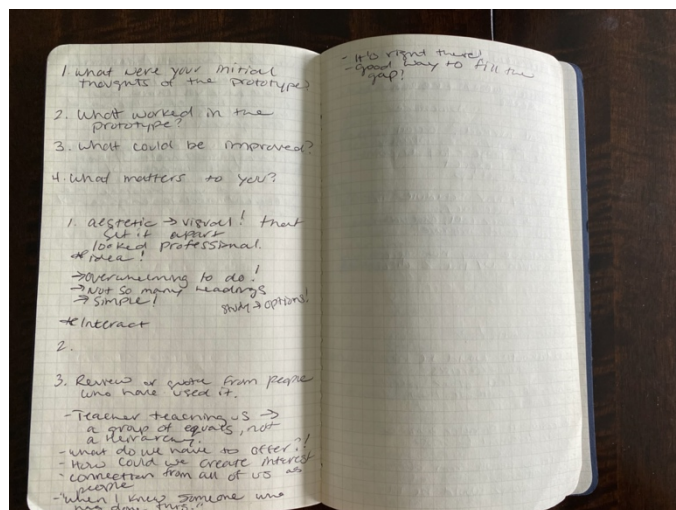 1. What were your initial
thoughts of the prototype?
2. What worked in the
prototype?
3. What could be improved?
4. What matters to you?
1. aestetic → visual! that
set it apart
looked professional.
* idea!
→ overwhelming to do!
→ Not so many headings
→ simple!
study → options!
* Interact
2.
3. Review or quote from people
who have used it.
- Teacher teaching us →
a group of equals, not
a heirarchy.
- what do we have to offer?!
- How could we create interest
- connection from all of us as
people
- "when I knew someone who
has done this."
- It's right there!
- good way to fill the
gap!